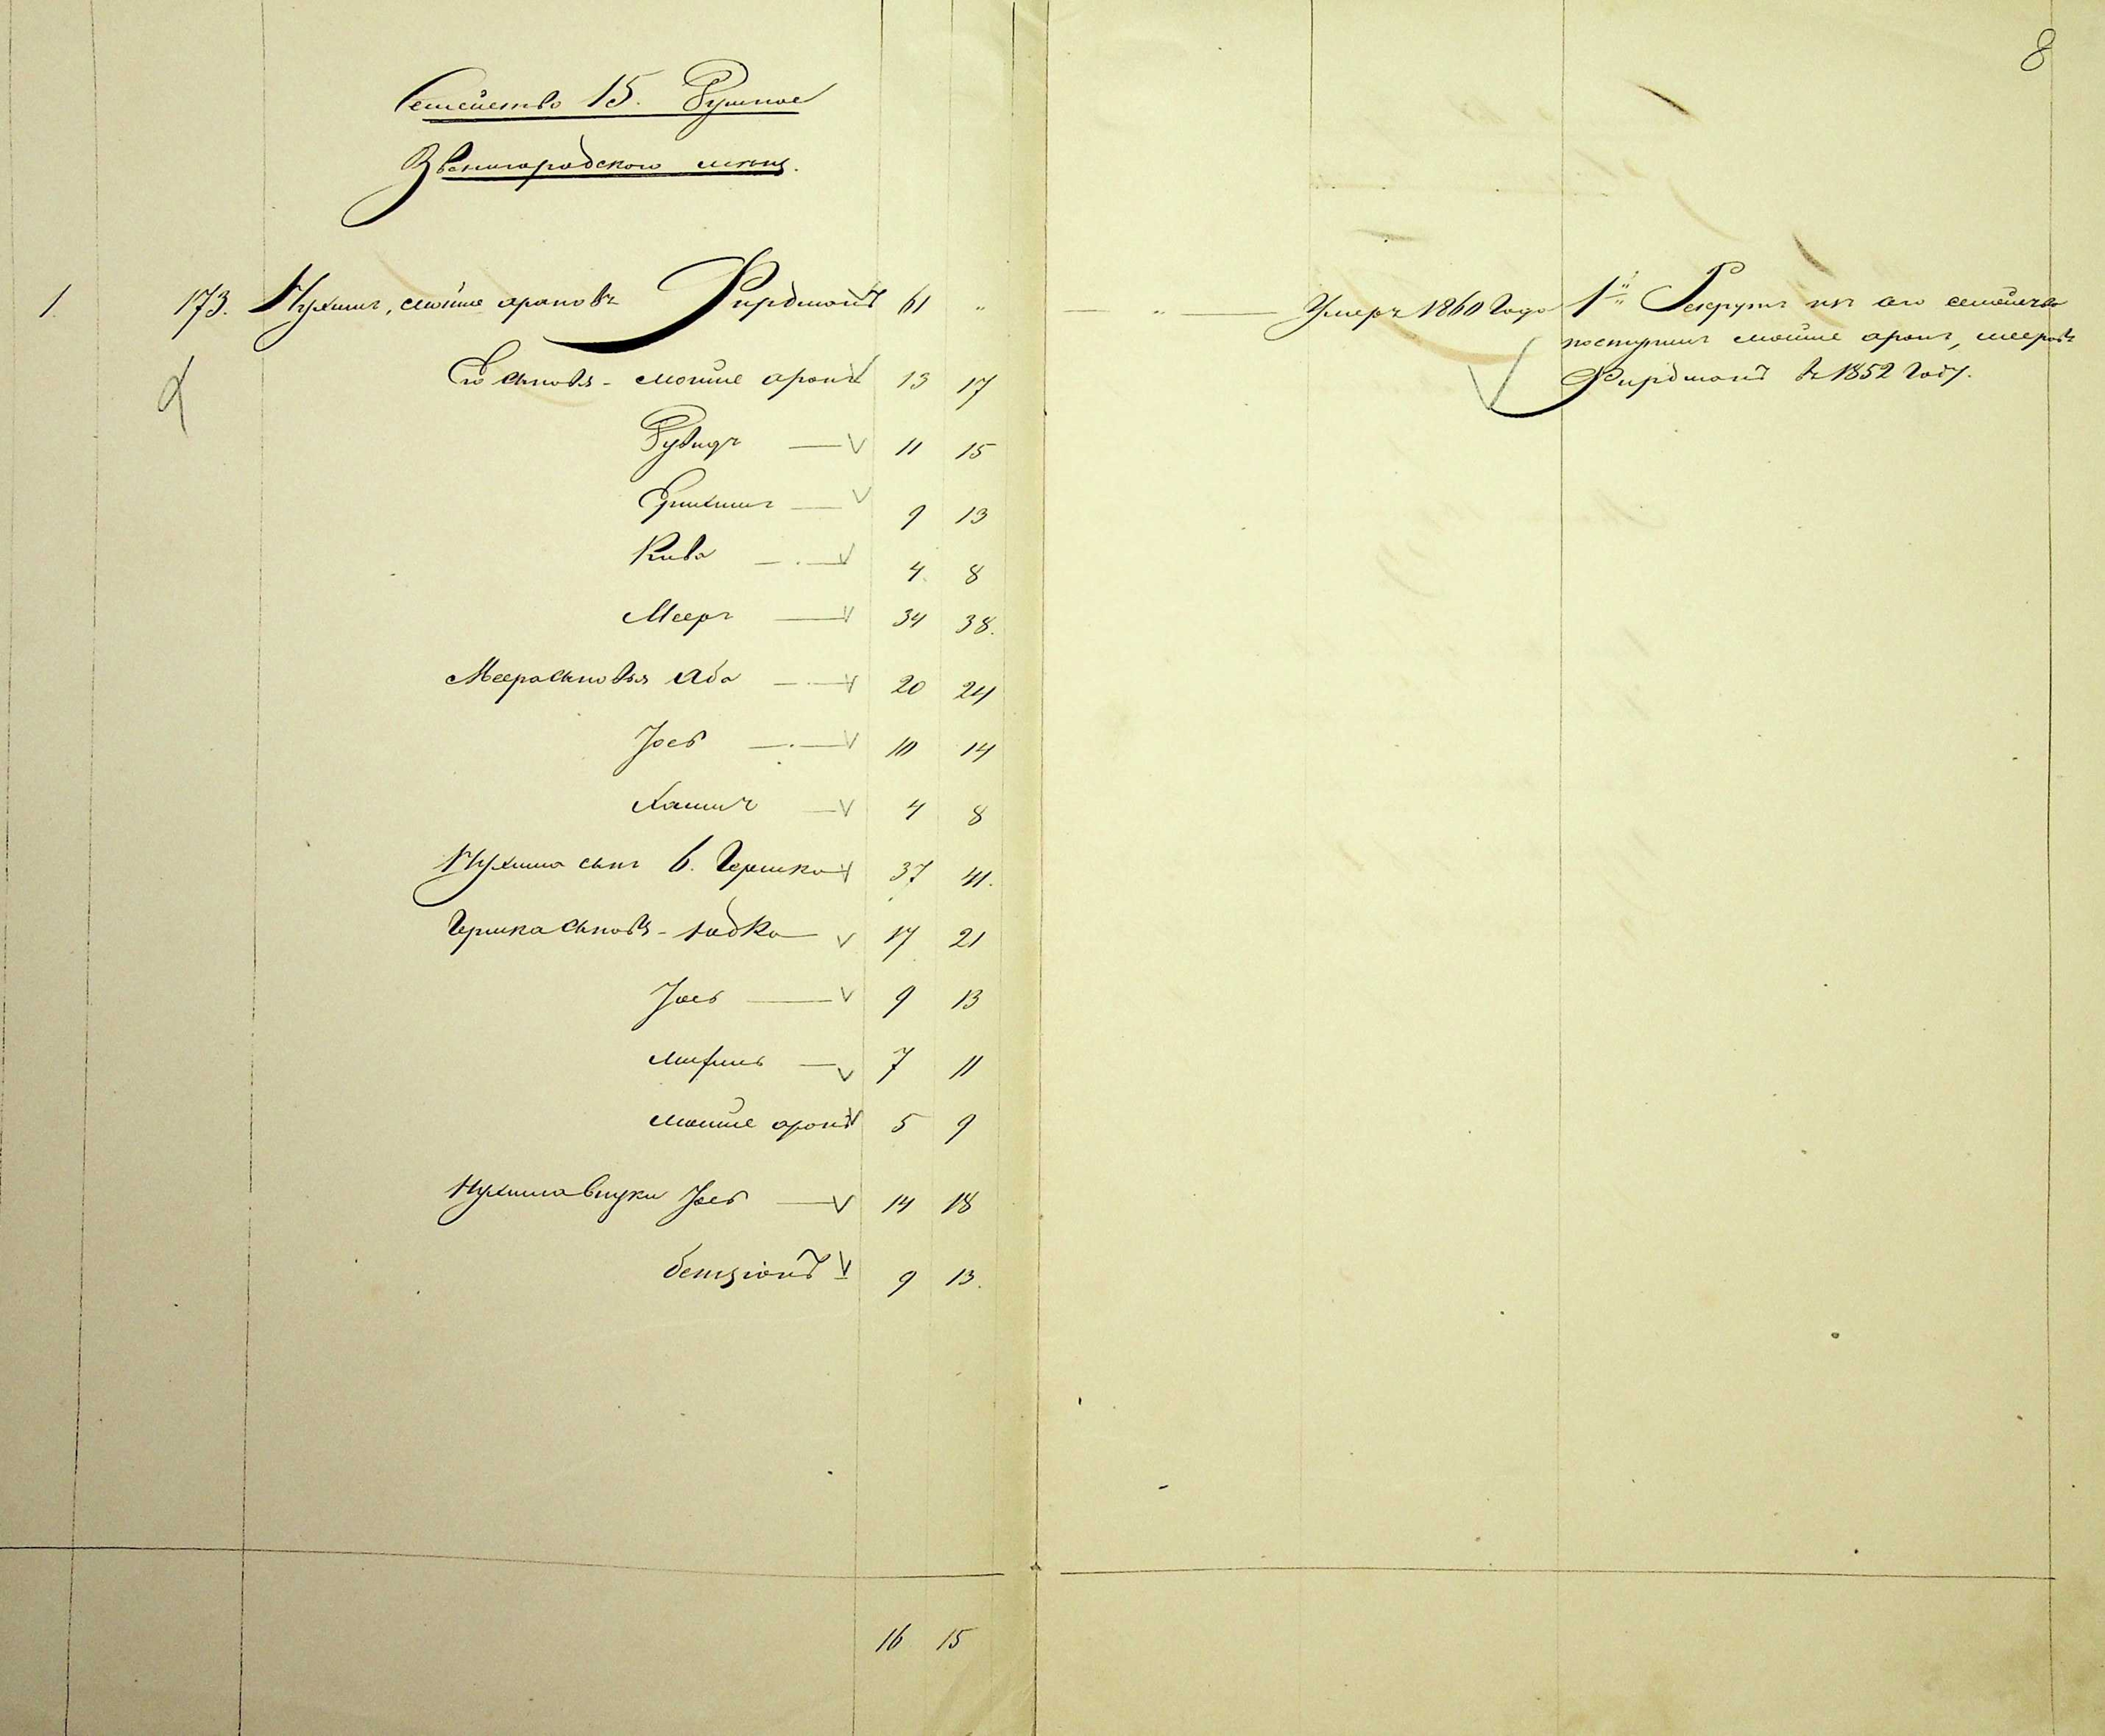 8
Семейство 15. Душное
Звенигородского мѣщ.
1. 173. Нухимъ, мойше ароновъ Фирдманъ 61 " — " — Умеръ 1860 Года 1й Рекрутъ изъ сего семейства
поступилъ мойше аронъ, мееровъ
Фирдманъ въ 1852 Году.
Его сыновья - мойше аронъ 13 17
Рувидъ — 11 15
— 9 13
Кива — 4 8
Мееръ — 34 38.
Меера сыновья Аба — 20 24
Іось — 10 14
Хаимъ — 4 8
Нухима сынъ б. Гершко 37 41.
Гершка сыновья - Юдко 17 21
Іось — 9 13
— 7 11
мойше аронъ 5 9
Нухима внуки Іось — 14 18
бенціонъ 9 13.
16 15